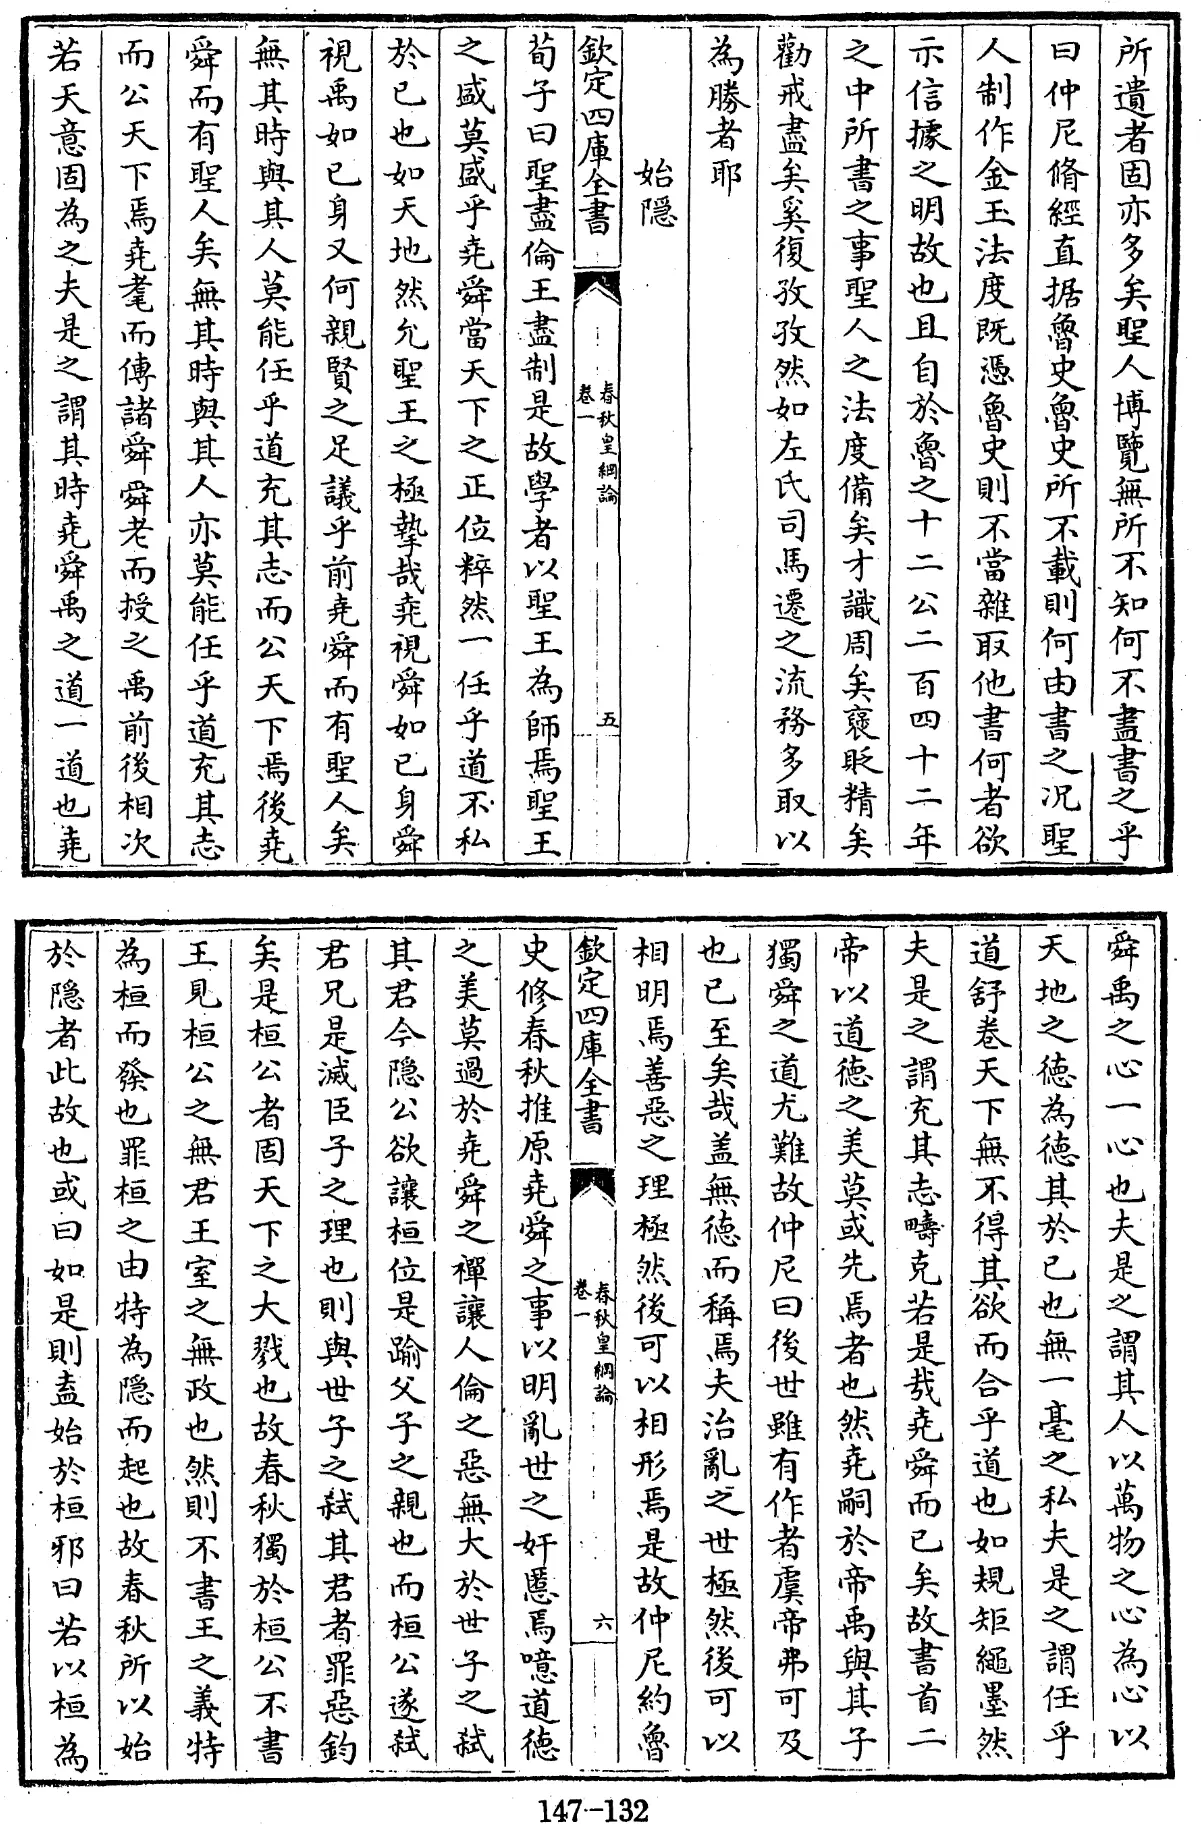 所遺者固亦多矣聖人博覽無所不知何不盡書之乎
曰仲尼脩經直据魯史魯史所不載則何由書之况聖
人制作金玉法度既憑魯史則不當雜取他書何者欲
示信據之明故也且自於魯之十二公二百四十二年
之中所書之事聖人之法度備矣才識周矣襃貶精矣
勸戒盡矣奚復孜孜然如左氏司馬遷之流務多取以
為勝者耶
始隠
欽定四庫全書
春秋皇綱論
卷一
五
荀子曰聖盡倫王盡制是故學者以聖王為師焉聖王
之盛莫盛乎堯舜當天下之正位粹然一任乎道不私
於已也如天地然允聖王之極摯哉堯視舜如已身舜
視禹如已身又何親賢之足議乎前堯舜而有聖人矣
無其時與其人莫能任乎道充其志而公天下焉後堯
舜而有聖人矣無其時與其人亦莫能任乎道充其志
而公天下焉堯耄而傳諸舜舜老而授之禹前後相次
若天意固為之夫是之謂其時堯舜禹之道一道也堯
舜禹之心一心也夫是之謂其人以萬物之心為心以
天地之德為德其於已也無一毫之私夫是之謂任乎
道舒卷天下無不得其欲而合乎道也如規矩繩墨然
夫是之謂充其志疇克若是哉堯舜而已矣故書首二
帝以道德之美莫或先焉者也然堯嗣於帝禹與其子
獨舜之道尤難故仲尼曰後世雖有作者虞帝弗可及
也已至矣哉盖無德而稱焉夫治亂之世極然後可以
相明焉善惡之理極然後可以相形焉是故仲尼約魯
欽定四庫全書
春秋皇綱論
卷一
六
史修春秋推原堯舜之事以明亂世之奸慝焉噫道德
之美莫過於堯舜之禪讓人倫之惡無大於世子之弑
其君今隠公欲讓桓位是踰父子之親也而桓公遂弑
君兄是滅臣子之理也則與世子之弑其君者罪惡鈞
矣是桓公者固天下之大戮也故春秋獨於桓公不書
王見桓公之無君王室之無政也然則不書王之義特
為桓而發也罪桓之由特為隠而起也故春秋所以始
於隠者此故也或曰如是則盍始於桓邪曰若以桓為
147-132